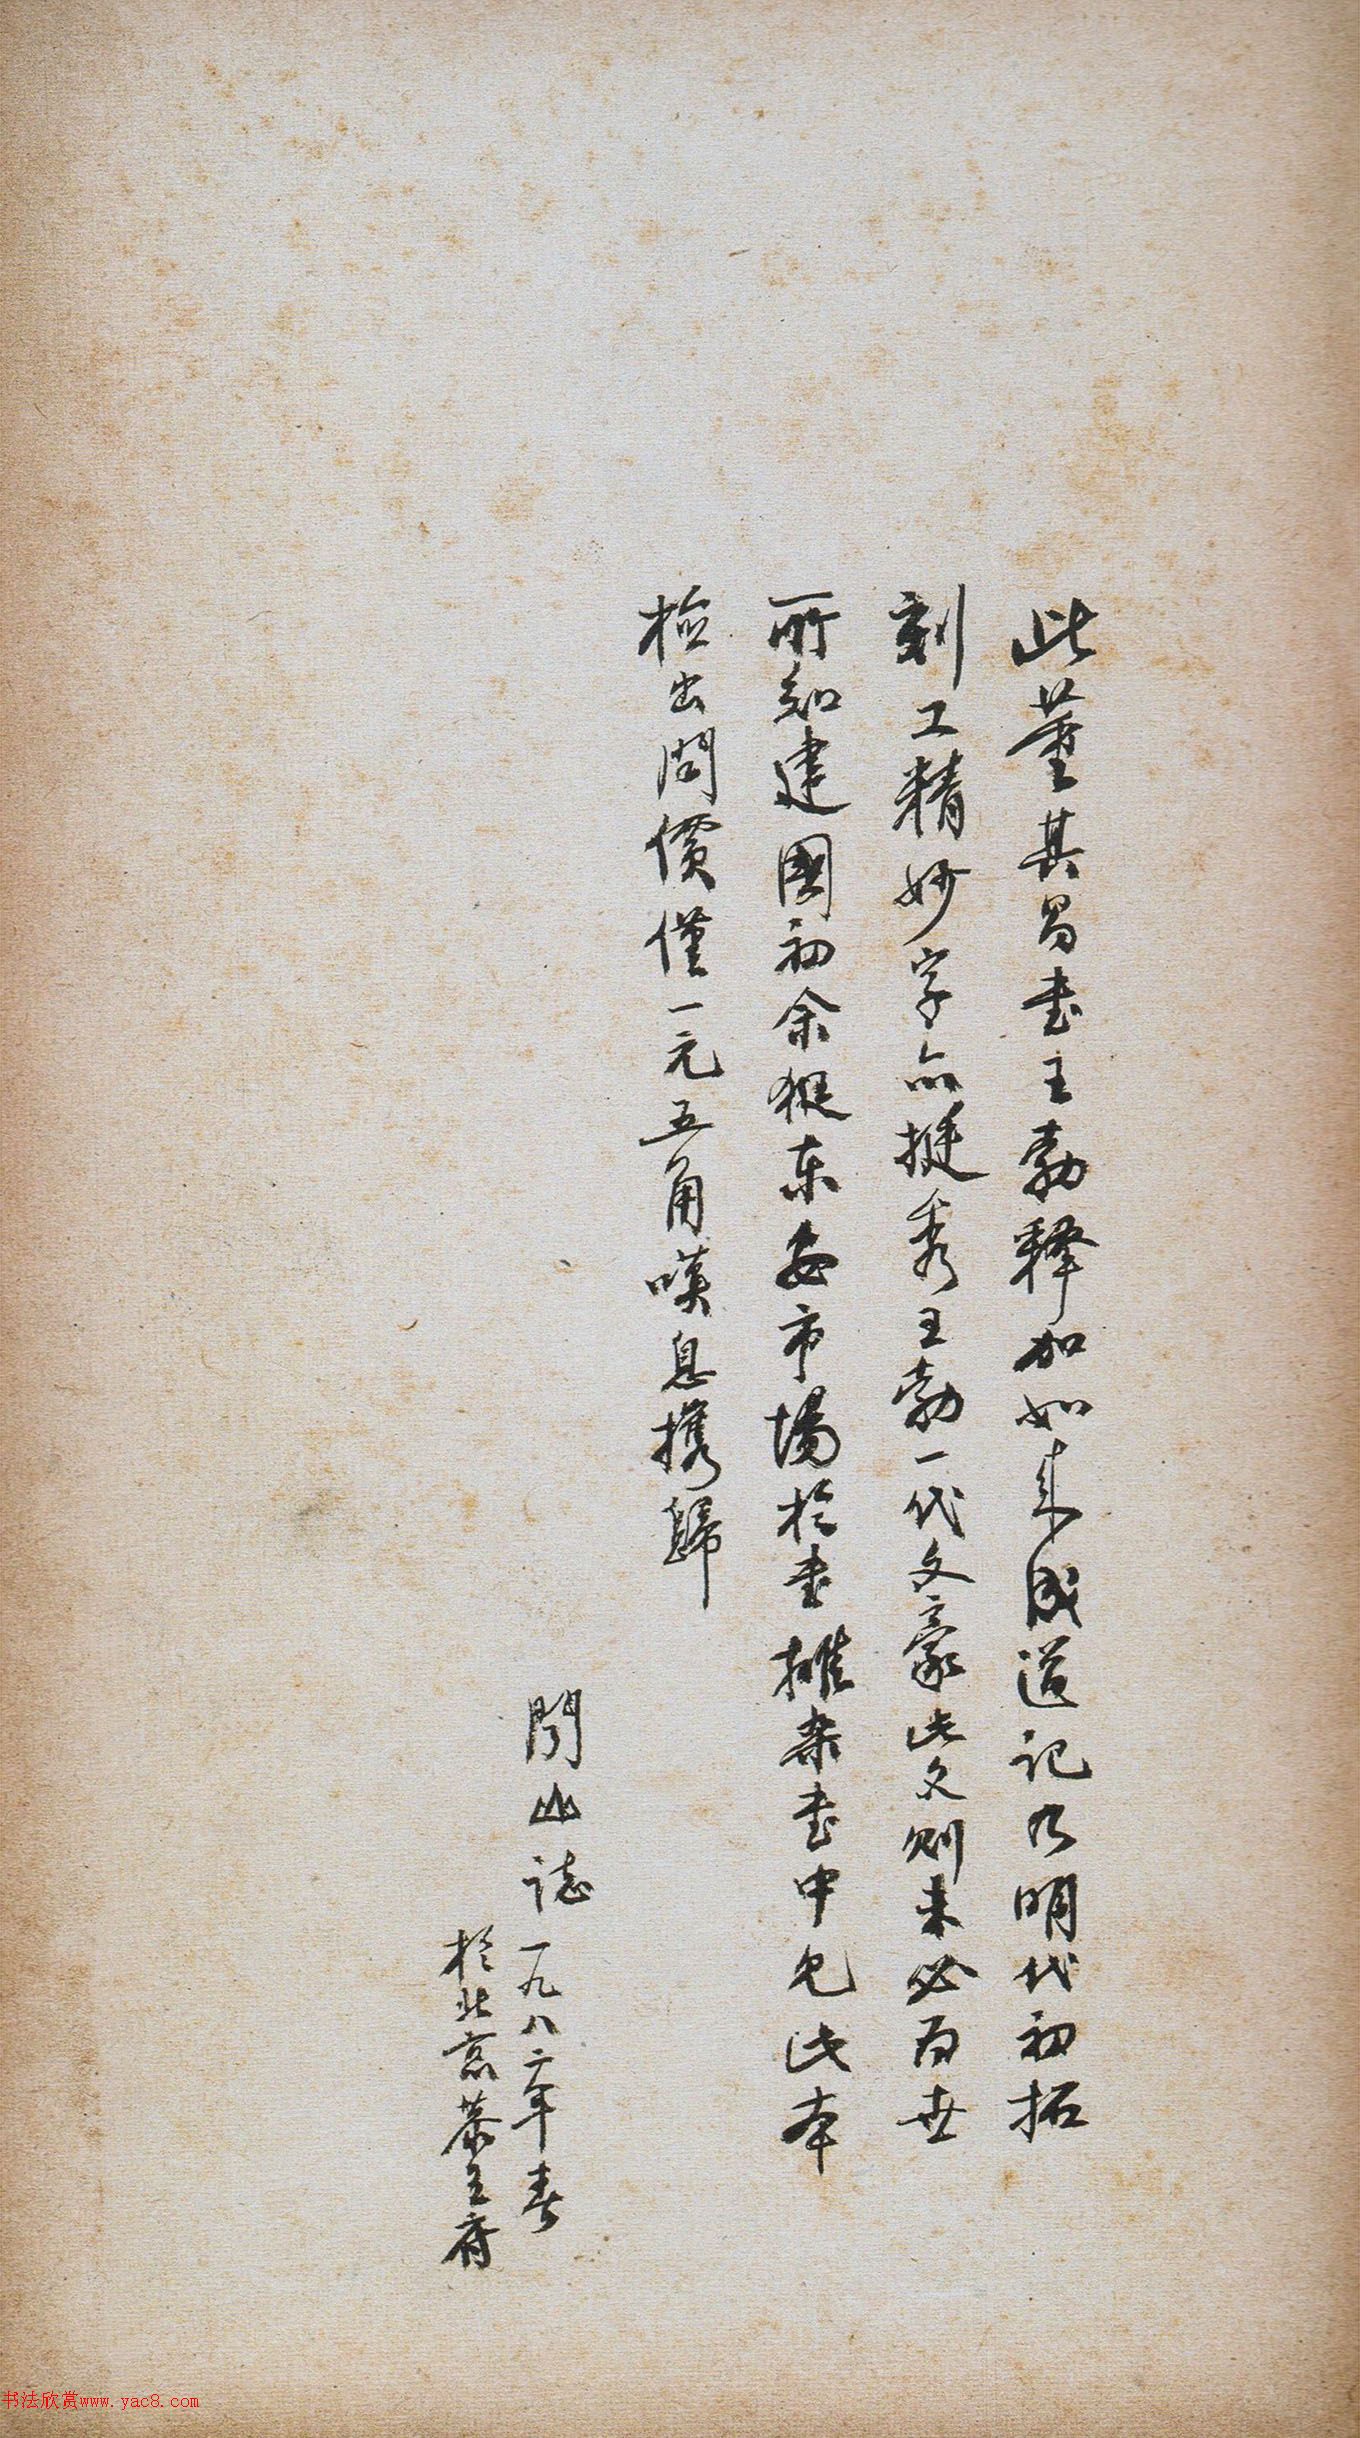 此董其昌書王勃释加如来成道记乃明代初拓
刻工精妙字亦挺秀王勃一代文豪此文则未必为世
所知建國初余挺东安市場於書摊杂書中見此本
检出問價僅一元五角嘆息携歸
閒山誌一九八二年春
於北京恭王府
书法欣赏www.yac8.com